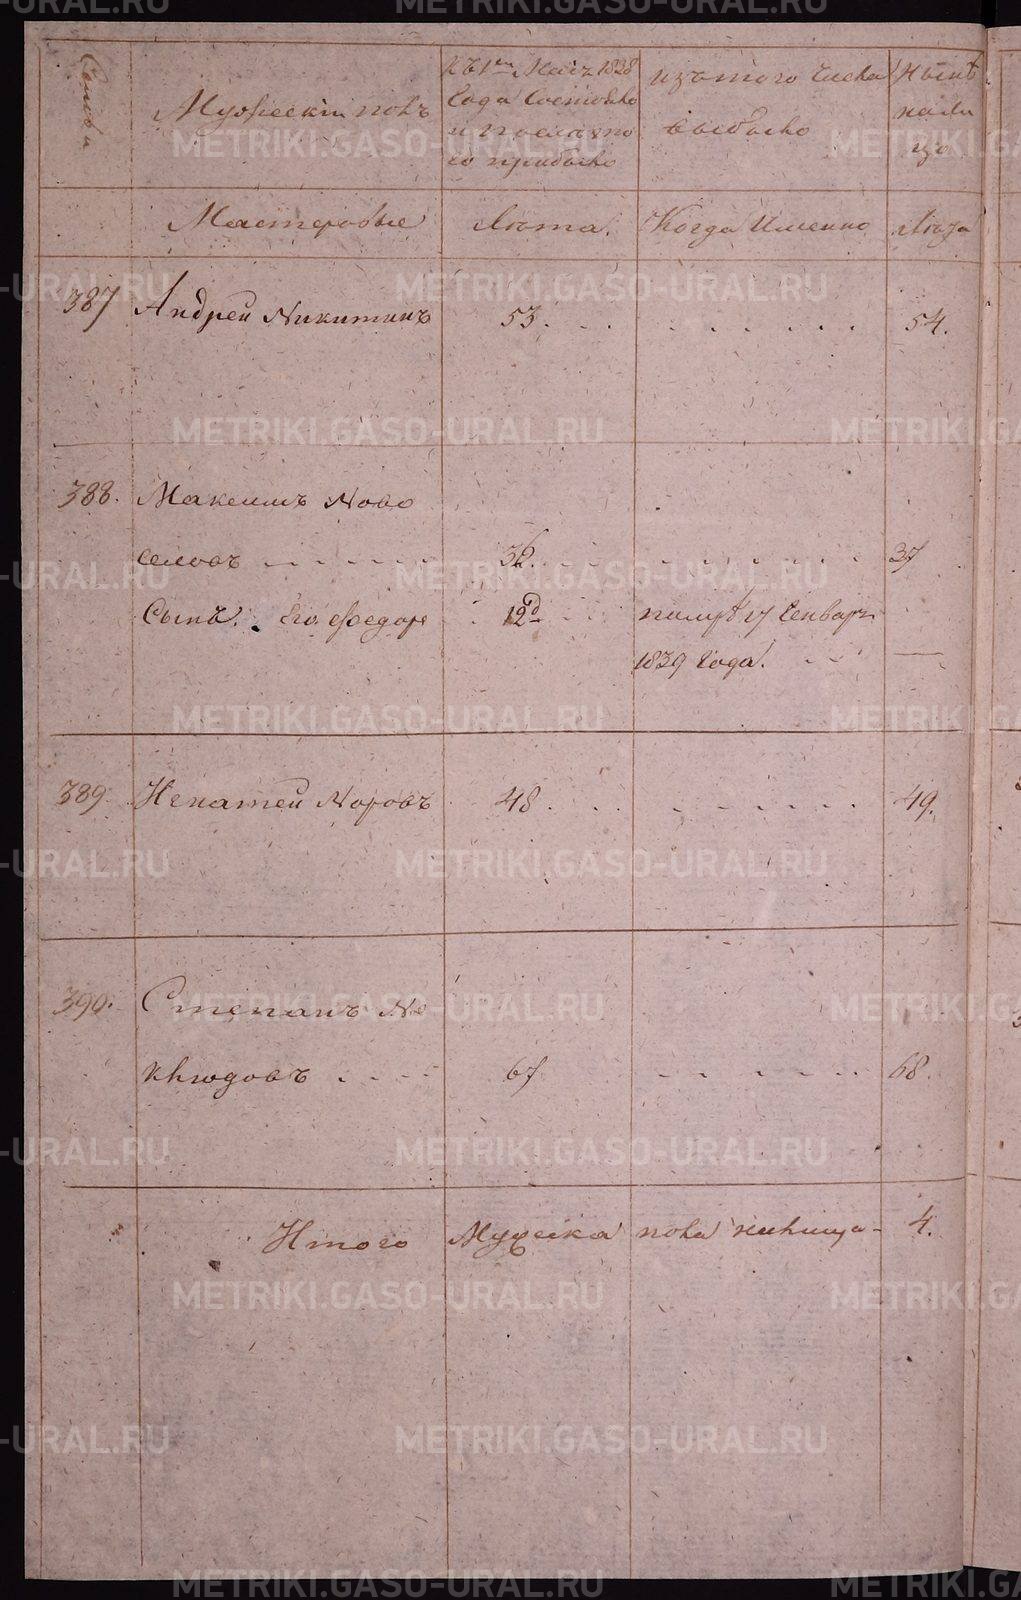 Семьи
Мужескiй полъ
Къ 1му Маiя 1838
Года Состояло
и после то
го прибыло
изъ того Числа
выбыло
Нынѣ
нали
цо
Мастеровые
Лѣта.
Когда Именно
Лѣта
387 Андрей Никитинъ 53. 54.
388. Максимъ Ново
селовъ 36. 37
Сынъ Его Федоръ 12д 17 Генваря
1839 Года.
389. Игнатей Норовъ 48. 49.
390. Степанъ Не
клюдовъ 67. 68.
Итого Мужеска пола налицо 4.
METRIKI.GASO-URAL.RU